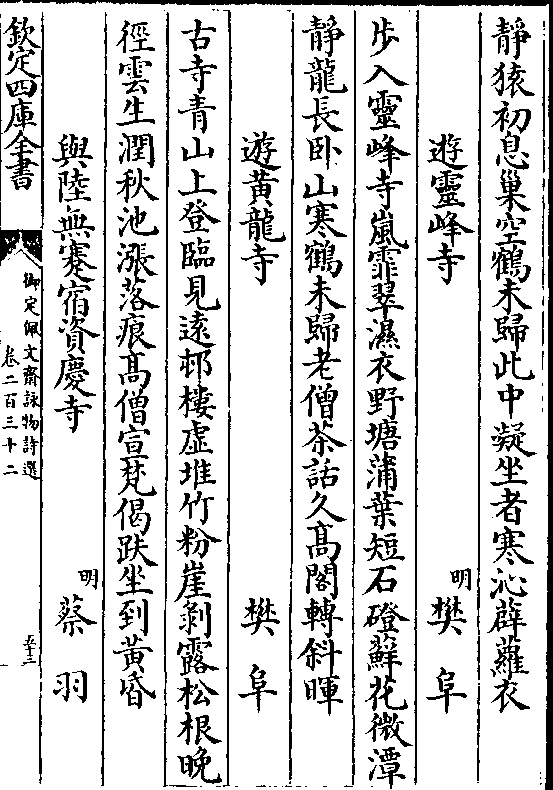 静猿初息巢空鶴未歸此中凝坐者寒沁薜蘿衣
遊靈峰寺
明
樊阜
步入靈峰寺嵐霏翠濕衣野塘蒲葉短石磴蘚花微潭
静龍長卧山寒鶴未歸老僧茶話久髙閣轉斜暉
遊黄龍寺
樊阜
古寺青山上登臨見逺邨樓虚堆竹粉崖剥露松根晚
徑雲生潤秋池漲落痕髙僧宣梵偈趺坐到黄昏
與陸無蹇宿資慶寺
明
蔡羽
欽定四庫全書
御定佩文齋詠物詩選
卷二百三十二
五十三